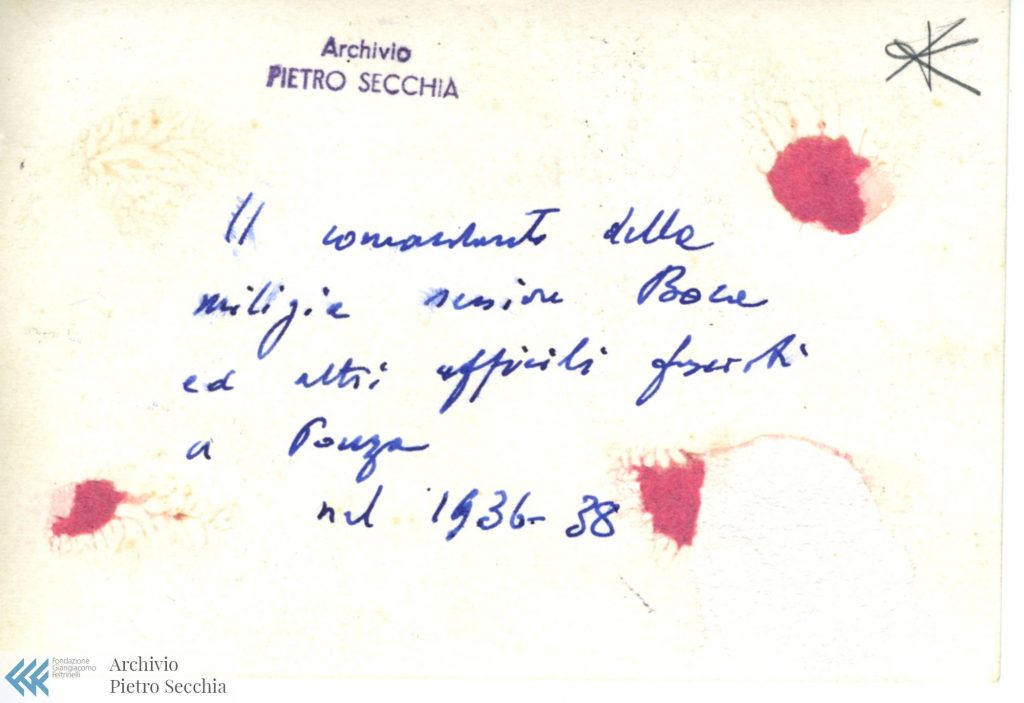 Archivio
PIETRO SECCHIA
Il comandante della
milizia seniore
ed altri ufficiali fascisti
a Ponza
nel 1936-38
Fondazione
Giangiacomo
Feltrinelli
Archivio
Pietro Secchia